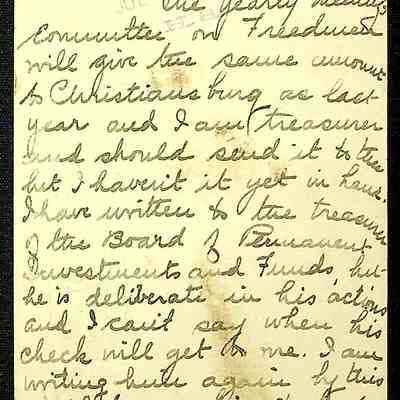 The yearly meeting
Committee on Freedmen
will give the same amount
to Christiansburg as last
year and I am treasurer
and should send it to thee
but I haven't it yet in hand.
I have written to the treasurer
of the Board of Permanent
Investments and Funds, but
he is deliberate in his actions
and I can't say when his
check will get to me. I am
writing him again by this